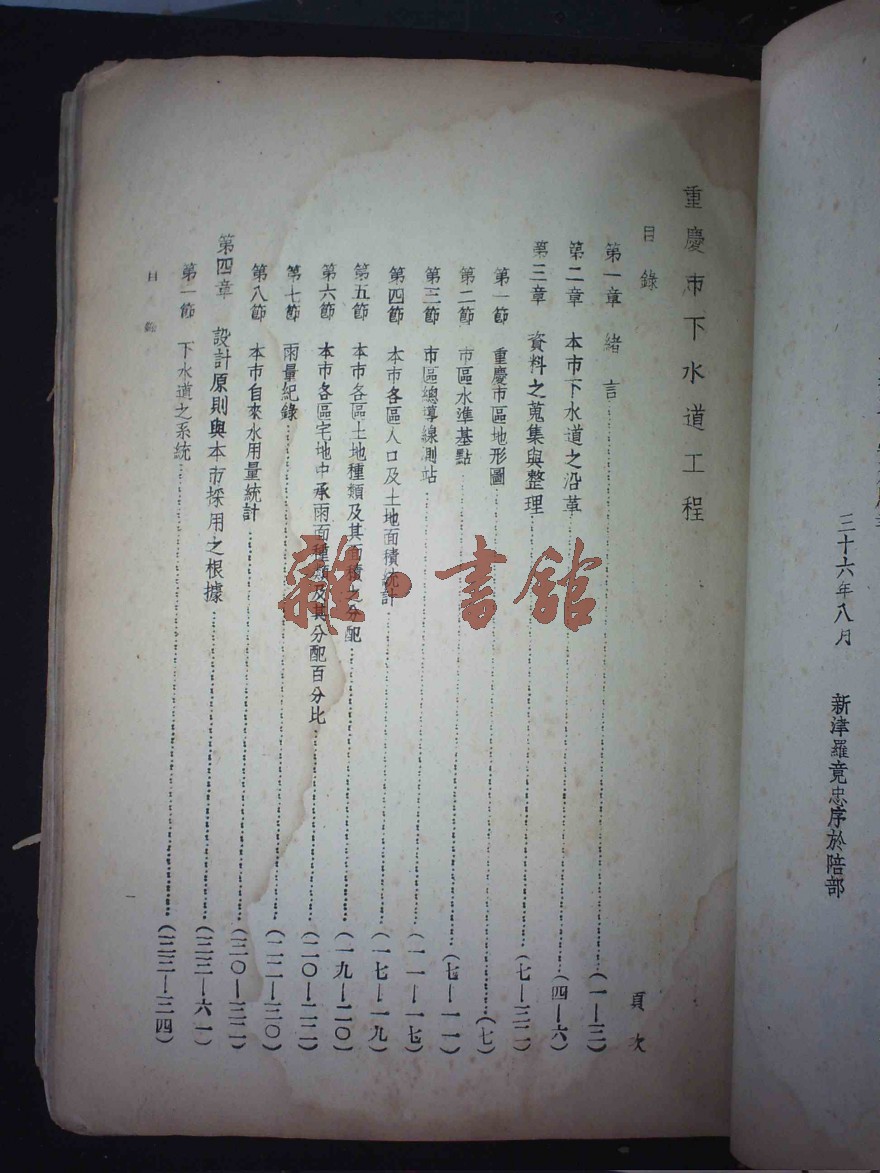 三十六年八月　新津羅竟忠序於陪部
重慶市下水道工程
目錄　頁次
第一章　緒言……(一—三)
第二章　本市下水道之沿革……(四—六)
第三章　資料之蒐集與整理……(七—三二)
第一節　重慶市區地形圖……(七)
第二節　市區水準基點……(七—一一)
第三節　市區總導線測站……(一一—一七)
第四節　本市各區人口及土地面積統計……(一七—一九)
第五節　本市各區土地種類及其面積之分配……(一九—二〇)
第六節　本市各區宅地中承雨面種類及其分配百分比……(二〇—二二)
第七節　雨量紀錄……(二二—三〇)
第八節　本市自來水用量統計……(三〇—三二)
第四章　設計原則與本市採用之根據……(三三—六一)
第一節　下水道之系統……(三三—三四)
目錄　一
雜·書館